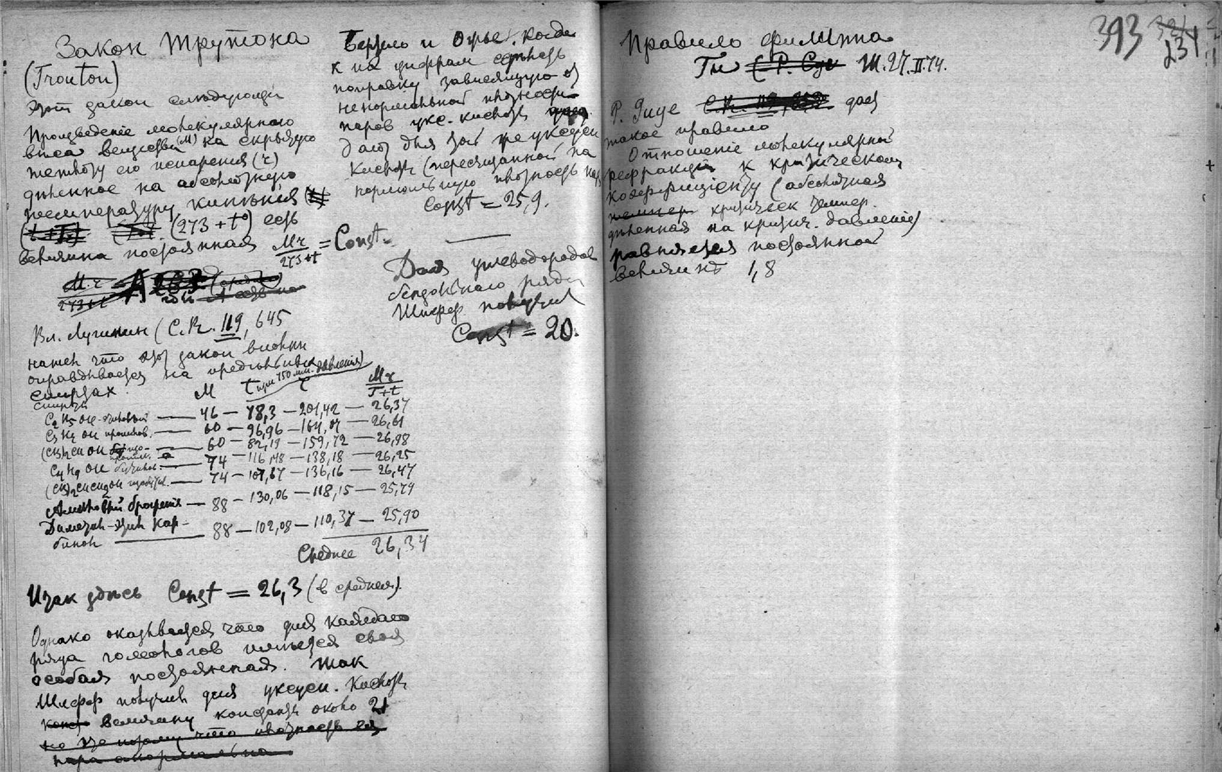 Закон Трутона
(Trouton)
Этот закон следующий
Произведение молекулярного
веса вещества (M) на скрытую
теплоту его испарения (r)
дѣленное на абсолютную
температуру кипѣния
(273 + t°) есть
величина постоянная Mr/273+t = Const.
Вл. Лугинин (C.R. 119, 645
нашел что этот закон вполне
оправдывается на предѣльных
спиртах.
спирты M t при 750 mm. давления r Mr/T+t
C2H5OH этиловый — 46 — 78,3 — 201,42 — 26,37
C3H7OH пропилов. — 60 — 96,96 — 164,07 — 26,61
(CH3)2CHOH — 60 — 82,19 — 159,72 — 26,98
C4H9OH бутилов. — 74 — 116,48 — 138,18 — 26,25
(CH3)2CHCH2OH изобутил. — 74 — 107,67 — 136,16 — 26,47
Амиловый брожения — 88 — 130,06 — 118,15 — 25,79
Диметил-этил кар-
бинол — 88 — 102,08 — 110,37 — 25,90
Среднее 26,34
Итак здѣсь Const = 26,3 (в среднем).
Однако оказывается что для каждого
ряда гомологов имѣется своя
особая постоянная. Так
Шифф получил для уксусн. кислот
величину константы около 21
но это потому что плотность ея
пара анормальна
Бертло и Ожье. Когда
к их цифрам сдѣлать
поправку зависящую от
ненормальной плотности
паров укс. кислоты
дало для той же уксусн
кислоты (пересчитанной на
нормальную плотность
Const = 25,9.
Для углеводородов
бензольного ряда
Шифф получил
Const = 20.
393 231
Правило Филиппа
Гю Т. 27.II.74.
Ф. Гюе C.R. дает
такое правило
Отношение молекулярной
рефракции к критическому
коэффициенту (абсолютная
критическ темпер.
дѣленная на критич. давление)
равняется постоянной
величинѣ 1,8